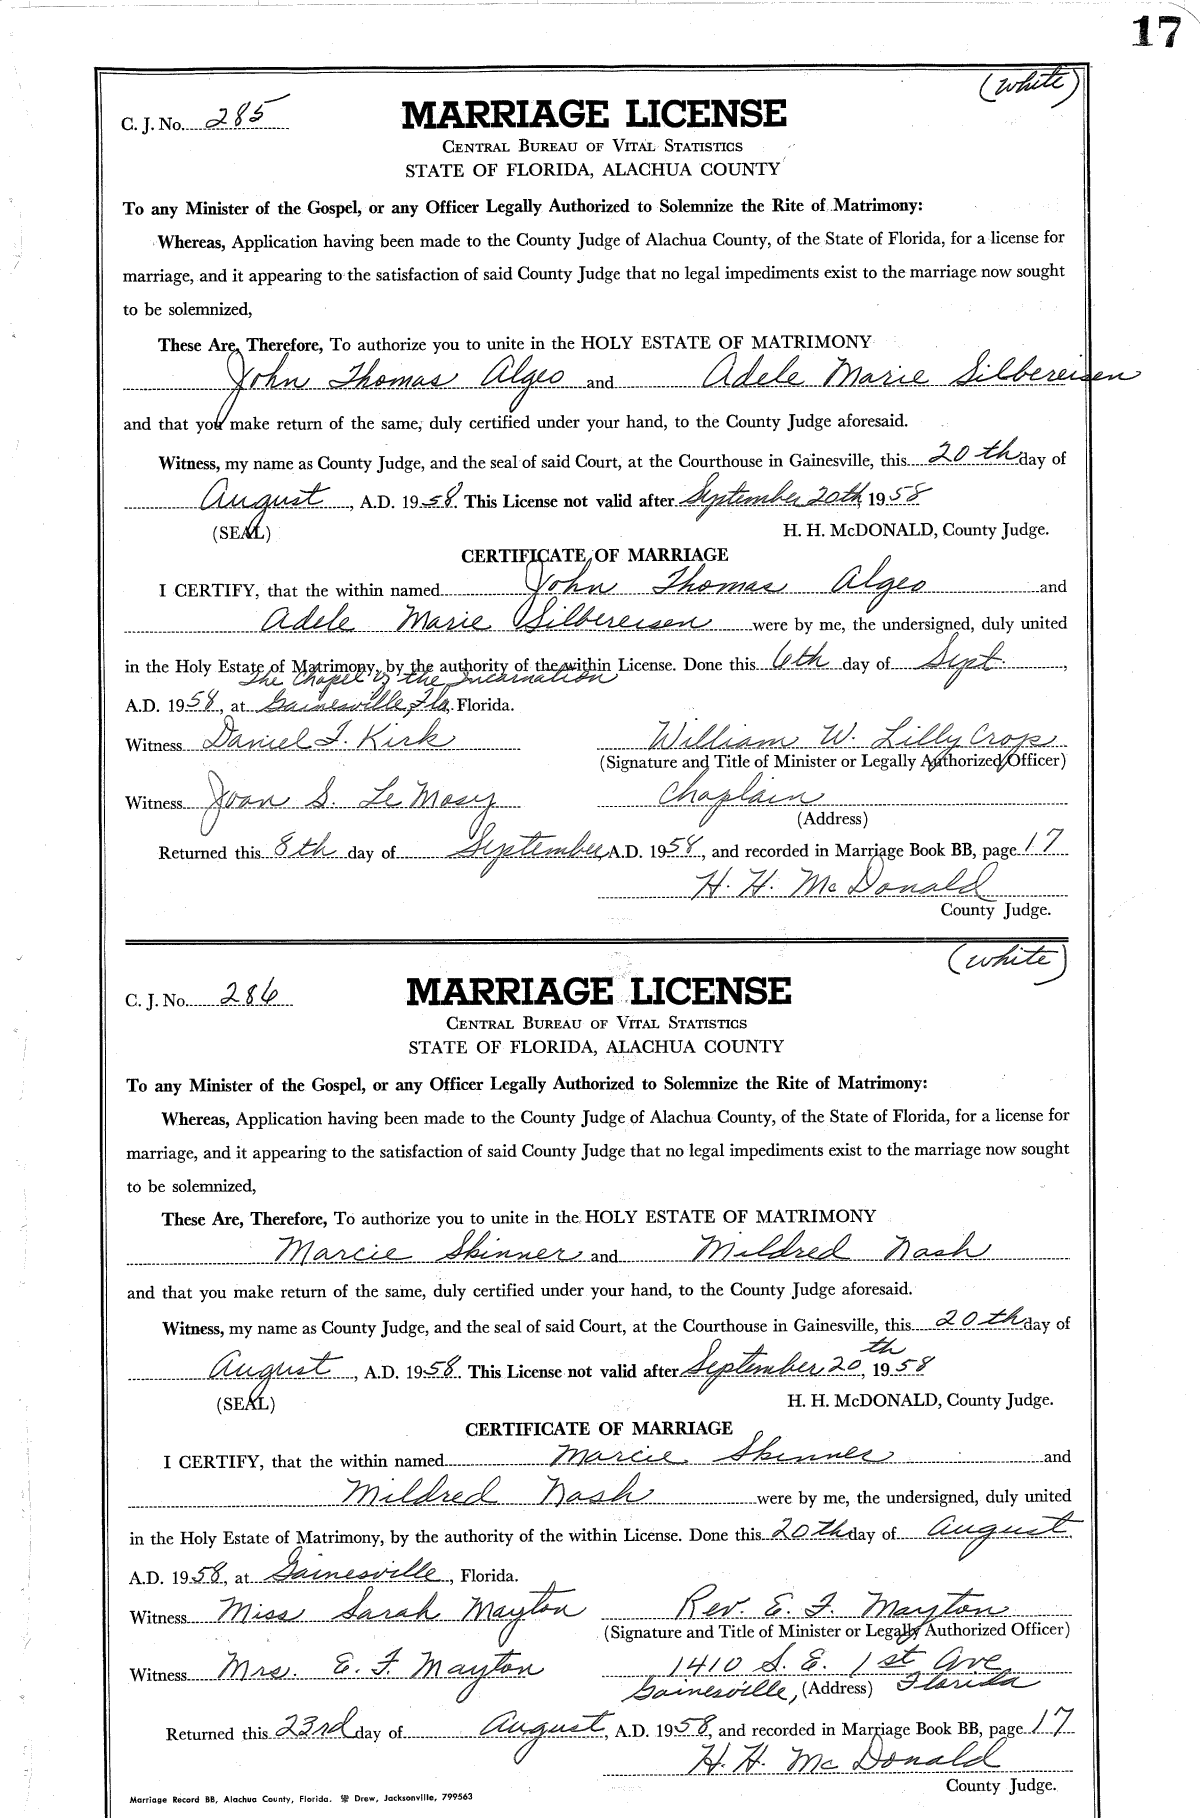 17
(white)
C. J. No. 285
MARRIAGE LICENSE
CENTRAL BUREAU OF VITAL STATISTICS
STATE OF FLORIDA, ALACHUA COUNTY
To any Minister of the Gospel, or any Officer Legally Authorized to Solemnize the Rite of Matrimony:
Whereas, Application having been made to the County Judge of Alachua County, of the State of Florida, for a license for
marriage, and it appearing to the satisfaction of said County Judge that no legal impediments exist to the marriage now sought
to be solemnized,
These Are, Therefore, To authorize you to unite in the HOLY ESTATE OF MATRIMONY
John Thomas Algeo and Adele Marie Silbereisen
and that you make return of the same, duly certified under your hand, to the County Judge aforesaid.
Witness, my name as County Judge, and the seal of said Court, at the Courthouse in Gainesville, this 20th day of
August, A.D. 1958. This License not valid after September 20th, 1958
(SEAL) H. H. McDONALD, County Judge.
CERTIFICATE OF MARRIAGE
I CERTIFY, that the within named John Thomas Algeo and
Adele Marie Silbereisen were by me, the undersigned, duly united
in the Holy Estate of Matrimony, by the authority of the within License. Done this 6th day of Sept.,
The Chapel of the Incarnation
A.D. 1958, at Gainesville, Fla. Florida.
Witness Daniel T. Kirk William W. Lilly Crops
(Signature and Title of Minister or Legally Authorized Officer)
Witness Joan S. Le Mosy Chaplain
(Address)
Returned this 8th day of September, A.D. 1958, and recorded in Marriage Book BB, page 17
H. H. McDonald
County Judge.
(white)
C. J. No. 286
MARRIAGE LICENSE
CENTRAL BUREAU OF VITAL STATISTICS
STATE OF FLORIDA, ALACHUA COUNTY
To any Minister of the Gospel, or any Officer Legally Authorized to Solemnize the Rite of Matrimony:
Whereas, Application having been made to the County Judge of Alachua County, of the State of Florida, for a license for
marriage, and it appearing to the satisfaction of said County Judge that no legal impediments exist to the marriage now sought
to be solemnized,
These Are, Therefore, To authorize you to unite in the HOLY ESTATE OF MATRIMONY
Marcie Skinner and Mildred Nash
and that you make return of the same, duly certified under your hand, to the County Judge aforesaid.
Witness, my name as County Judge, and the seal of said Court, at the Courthouse in Gainesville, this 20th day of
August, A.D. 1958. This License not valid after September 20th, 1958
(SEAL) H. H. McDONALD, County Judge.
CERTIFICATE OF MARRIAGE
I CERTIFY, that the within named Marcie Skinner and
Mildred Nash were by me, the undersigned, duly united
in the Holy Estate of Matrimony, by the authority of the within License. Done this 20th day of August,
A.D. 1958, at Gainesville, Florida.
Witness Miss Sarah Mayton Rev. E. F. Mayton
(Signature and Title of Minister or Legally Authorized Officer)
Witness Mrs. E. F. Mayton 1410 S. E. 1st Ave
Gainesville, (Address) Florida
Returned this 23rd day of August, A.D. 1958, and recorded in Marriage Book BB, page 17
H. H. McDonald
County Judge.
Marriage Record BB, Alachua County, Florida. Drew, Jacksonville, 799563